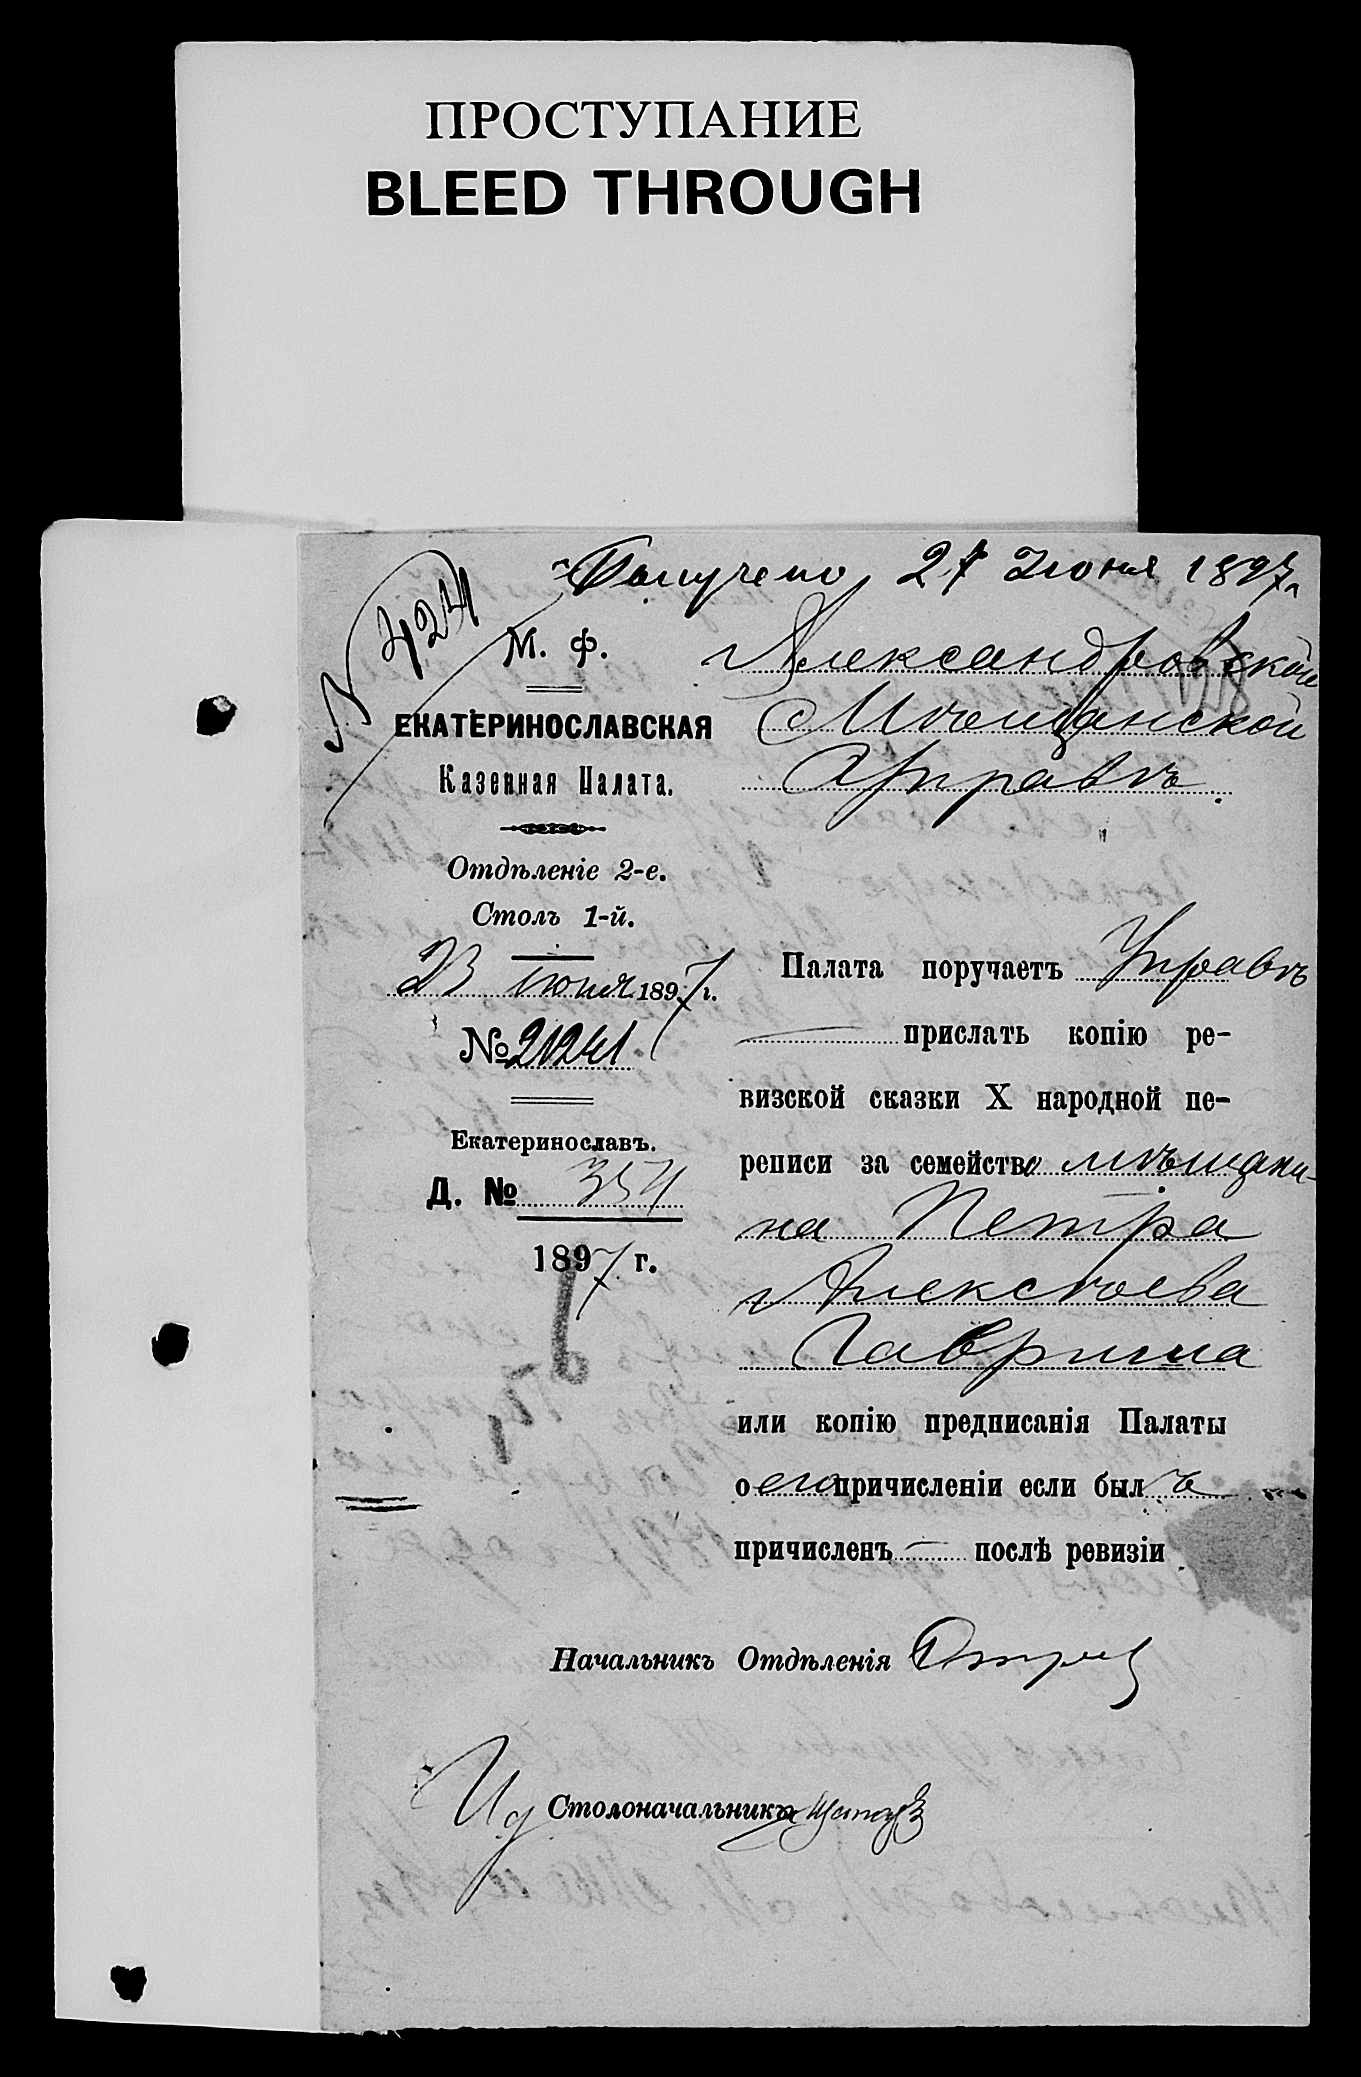 ПРОСТУПАНИЕ
BLEED THROUGH
Получено 27 Июня 1897 г.
N 424
М. Ф.
ЕКАТЕРИНОСЛАВСКАЯ
Казенная Палата.
Отдѣленіе 2-е.
Столъ 1-й.
23 июня 1897 г.
№ 21241
Екатеринославъ.
Д. № 354
1897 г.
Александровской
Мѣщанской
Управѣ
Палата поручаетъ Управѣ
прислать копію ре-
визской сказки X народной пе-
реписи за семейство мѣщани-
на Петра
Алексѣева
Гавриша
или копію предписанія Палаты
о его причисленіи если былъ
причисленъ послѣ ревизіи
Начальникъ Отдѣленія
И д Столоначальника